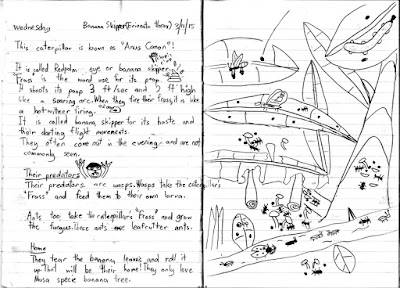 Wednesday Banana Skipper (Erionota thrax) 3/6/15
This caterpillar is known as "Anus Canon"!
It is called Redpalm eye or banana skipper.
"Frass" is the word use for its poop.
It shoots its poop 3 ft/sec and 2 ft high
like a soaring arc. When they fire their frass, it is like
a hot-mitrer firing.
It is called banana skipper for its haste and
their darting flight movements.
They often come out in the evening and are not
commonly seen.
Their predators
Their predators are wasps. Wasps take the caterpillars
"Frass" and feed them to their own larva.
Ants too take the caterpillars "Frass" and grow
the fungus. These ants are leafcutter ants.
Home
They tear the banana leaves and roll it
up. That will be their home! They only love
Musa specie banana tree.